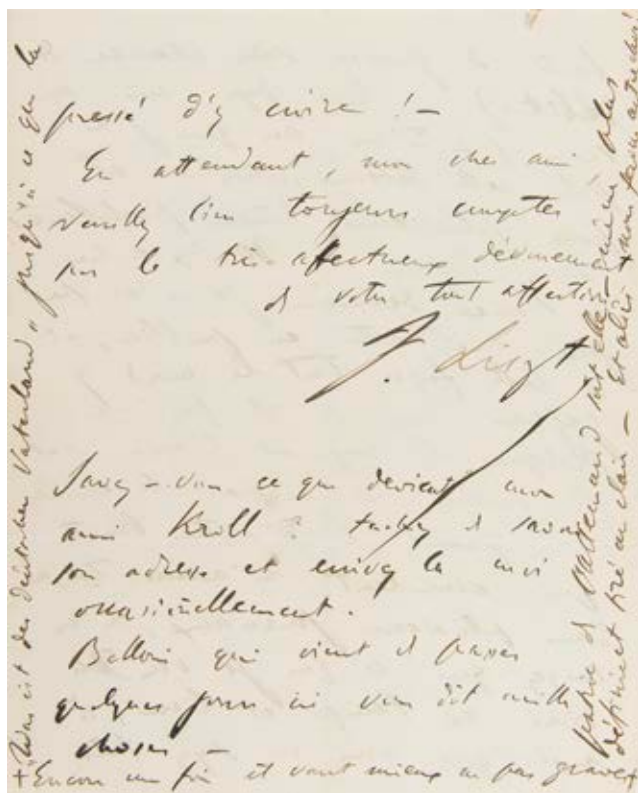 pressé d'y croire ! —
En attendant, mon cher ami,
veuillez bien toujours compter
sur le très affectueux dévouement
de votre tout affectionné
F. Liszt
Savez-vous ce que devient mon
ami Kroll ? tachez de savoir
son adresse et envoyez la moi
occasionellement.
Belloni qui vient de passer
quelques jours ici vous dit mille
choses —
+ Encore une fois il vaut mieux ne pas graver
"Was ist des deutschen Vaterland" jusqu'à ce que la
patrie de l'allemand soit elle-même plus
définie et tiré au clair — Et alors